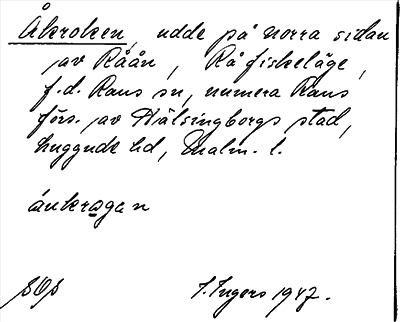 Åkroken, udde på norra sidan
av Råån, Rå fiskeläge,
f.d. Raus sn, numera Raus
förs. av Hälsingborgs stad,
Luggude hd, Malm. l.
ånkrogen
I. Ingers 1947.